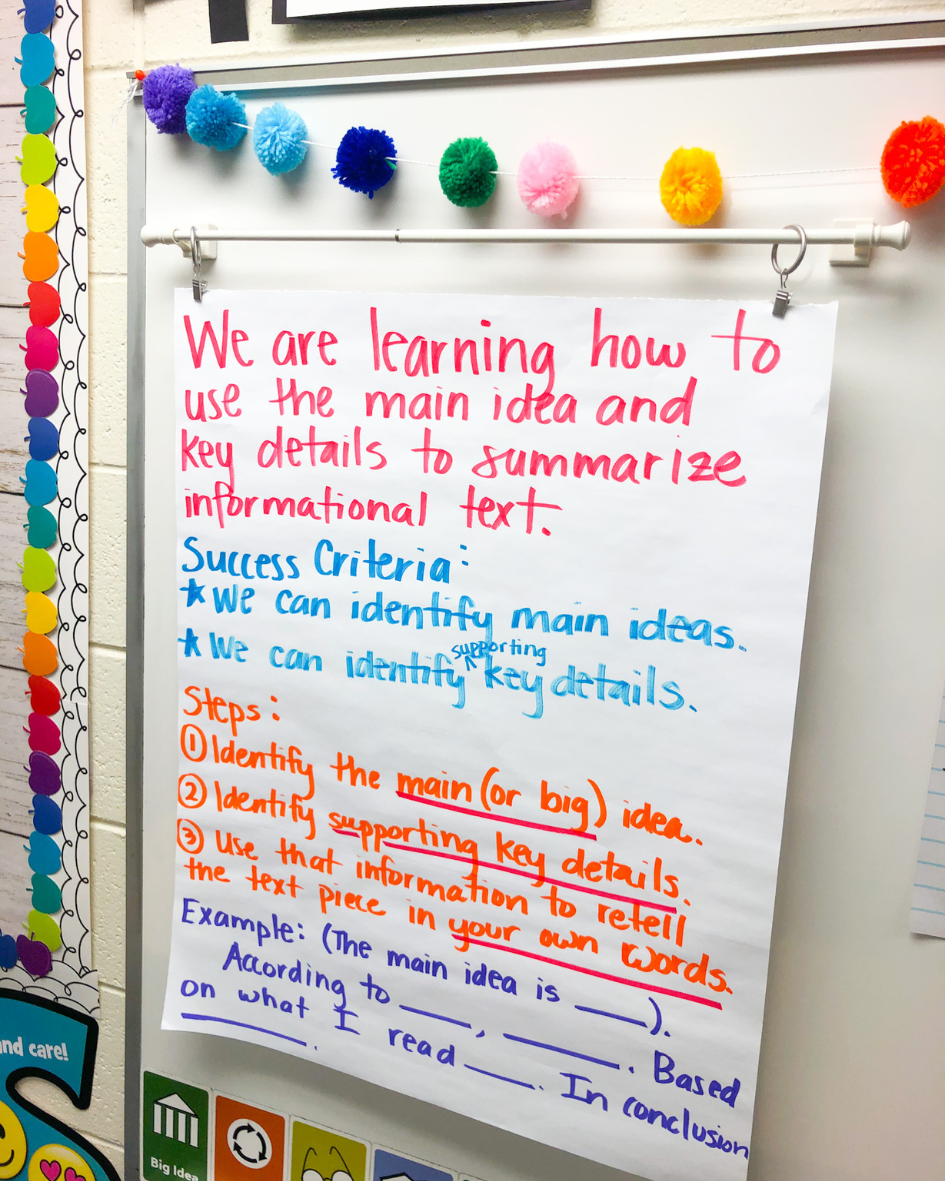 We are learning how to
use the main idea and
key details to summarize
informational text.
Success Criteria:
* We can identify main ideas.
* We can identify supporting key details.
Steps:
① Identify the main (or big) idea.
② Identify supporting key details.
③ Use that information to retell
the text piece in your own words.
Example: (The main idea is ____).
According to ____, ____. Based
on what I read ____. In conclusion
____.
and care!
Big Idea